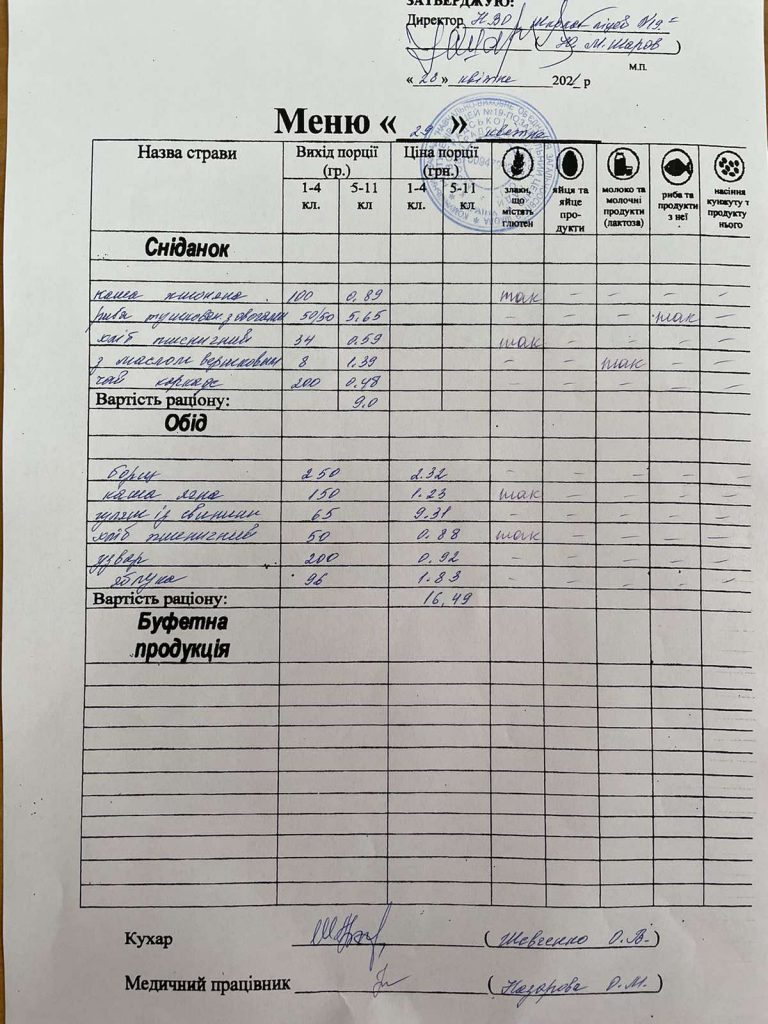 ЗАТВЕРДЖУЮ:
Директор НВО Школа-ліцей №19
( Ю. М. Шаров )
м.п.
« 28 » квітня 2021 р
Меню « 29 » квітня
Назва страви Вихід порції (гр.) Ціна порції (грн.) злаки, що містять глютен яйця та яйце про- дукти молоко та молочні продукти (лактоза) риба та продукти з неї насіння кунжуту т продукту нього
1-4 кл. 5-11 кл 1-4 кл. 5-11 кл
Сніданок
каша пшоняна 100 0.89 так - - - -
риба тушкован з овочами 50/50 5.65 - - - так -
хліб пшеничний 34 0.59 так - - - -
з маслом вершковим 8 1.39 - - так - -
чай каркаде 200 0.48 - - - - -
Вартість раціону: 9.0
Обід
борщ 250 2.32 - - - - -
каша ячна 150 1.23 так - - - -
гуляш із свинини 65 9.31 - - - - -
хліб пшеничний 50 0.88 так - - - -
узвар 200 0.92 - - - - -
яблука 96 1.83 - - - - -
Вартість раціону: 16,49
Буфетна
продукція
Кухар ( Шевченко О.В. )
Медичний працівник ( Назарова О.М. )